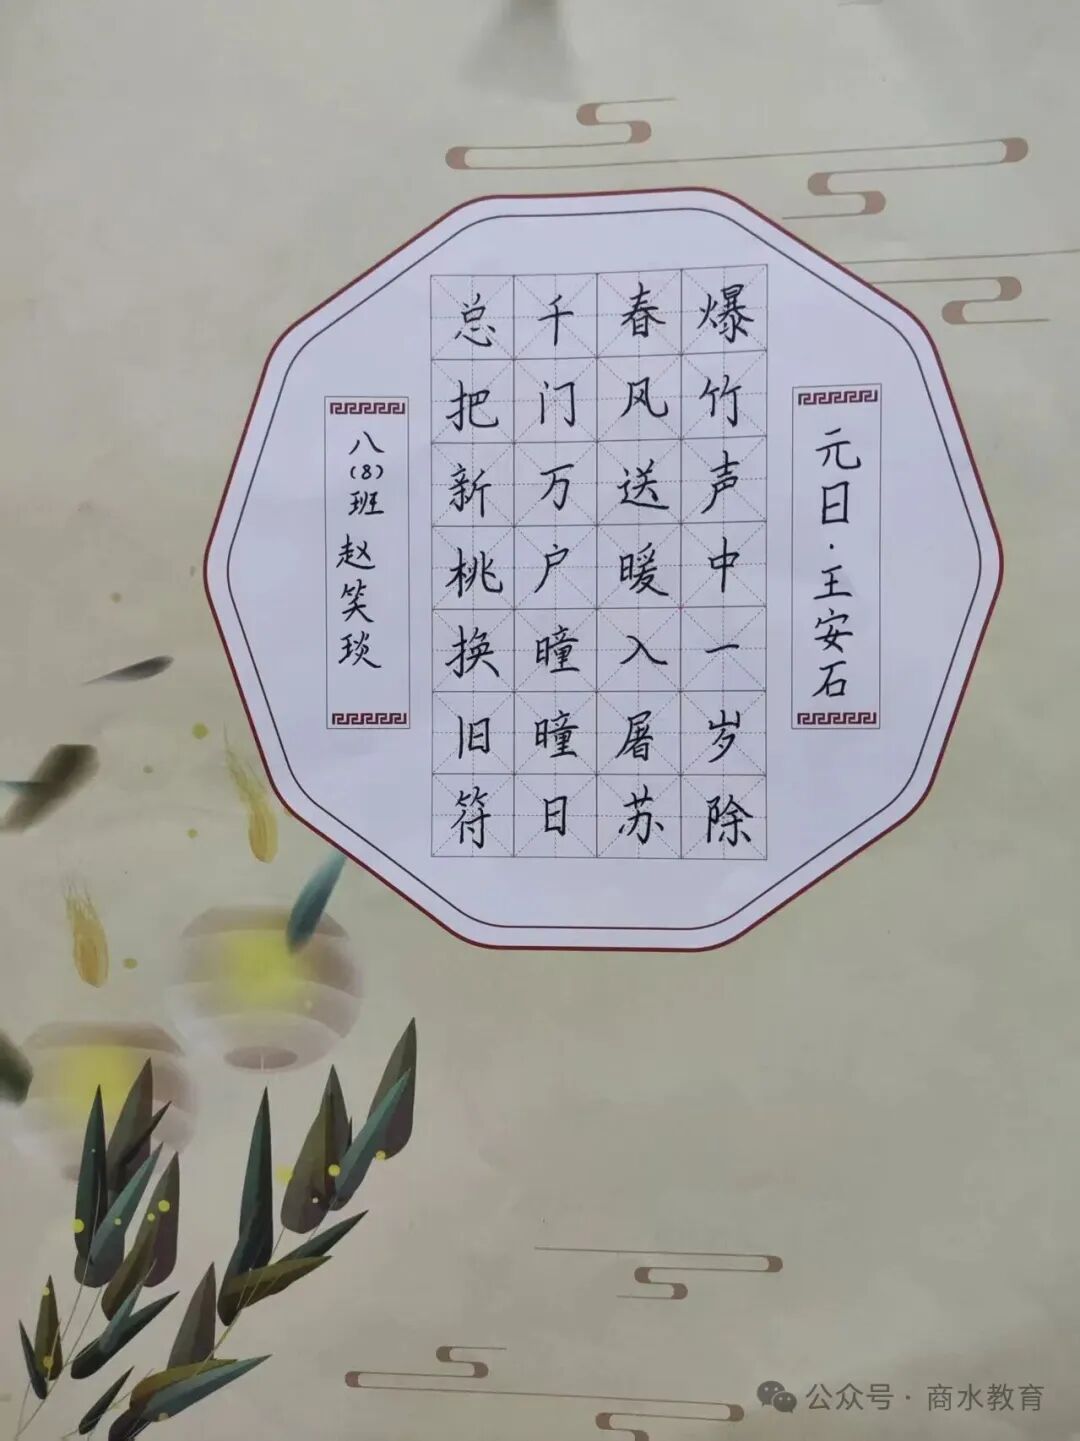 元日·王安石
爆竹声中一岁除
春风送暖入屠苏
千门万户曈曈日
总把新桃换旧符
八(8)班 赵笑琰
公众号·商水教育